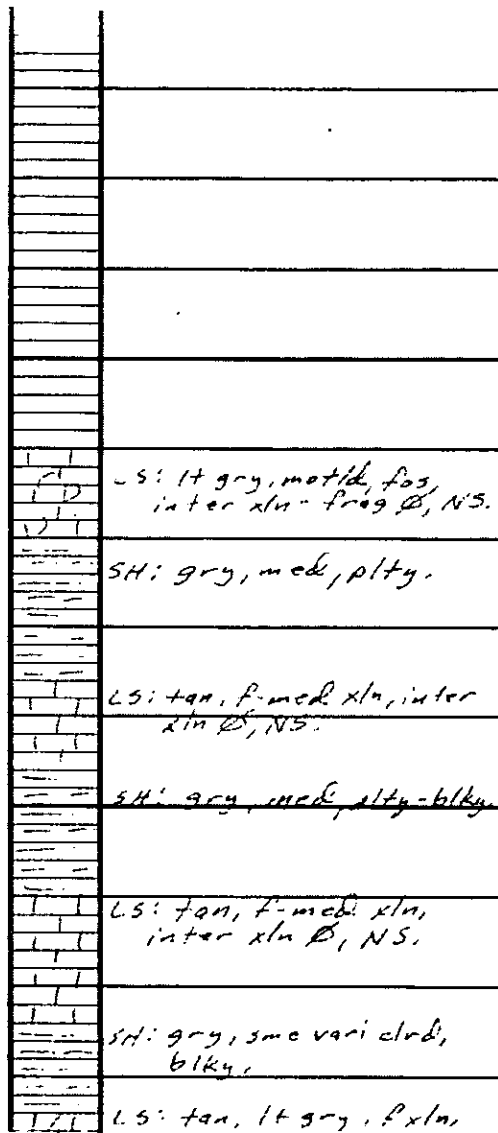 LS: lt gry, motld, fos,
inter xln - frag Ø, NS.
SH: gry, med, plty.
LS: tan, f-med xln, inter
xln Ø, NS.
SH: gry, med, plty-blky.
LS: tan, f-med xln,
inter xln Ø, NS.
SH: gry, sme vari clrd,
blky.
LS: tan, lt gry, fxln,